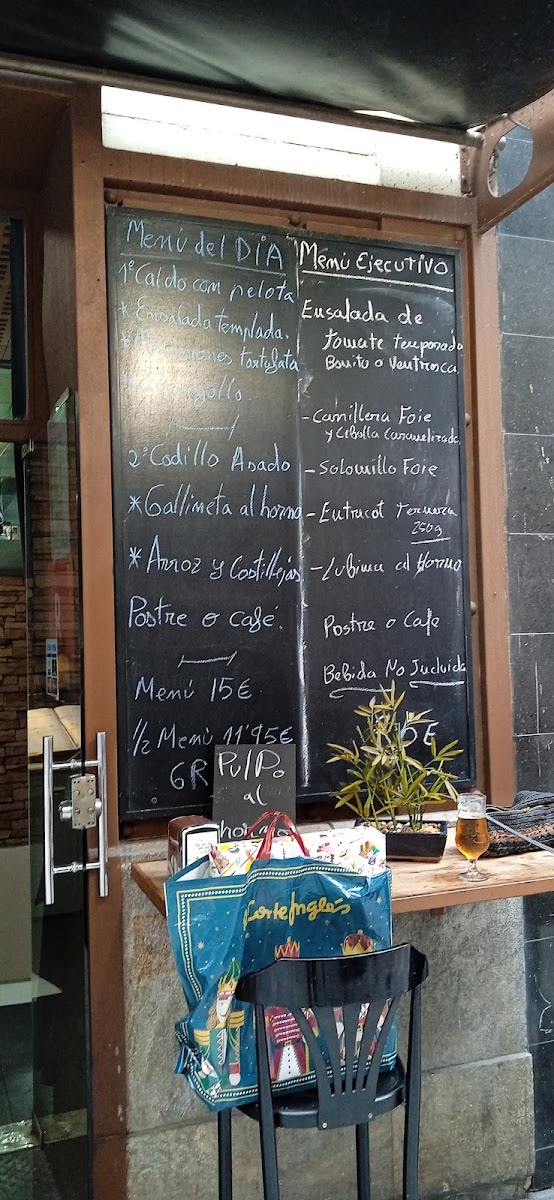 Menú del DIA
1º Caldo con pelota
* Ensalada templada.
* tartufata
*
2º Codillo Asado
* Gallineta al horno
* Arroz y Costillejas
Postre o café.
Menú 15€
½ Menú 11'95€
Menú Ejecutivo
Ensalada de
tomate temporada
Bonito o Ventresca
- Carrillera Foie
y Cebolla Caramelizada
- Solomillo Foie
- Entrecot Ternera
250g
- Lubina al Horno
Postre o Cafe
Bebida No Incluida
€
Pulpo
al
horno
El Corte Inglés